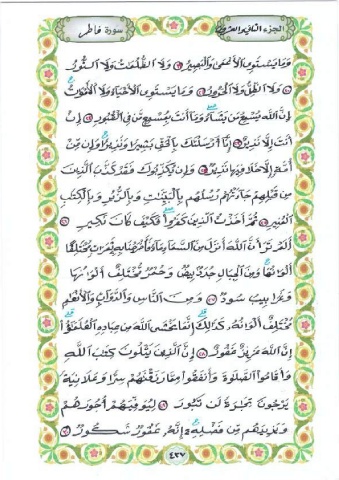 الجزء الثاني والعشرون
سورة فاطر
وَمَا يَسْتَوِي الْأَعْمَىٰ وَالْبَصِيرُ ۝ وَلَا الظُّلُمَاتُ وَلَا النُّورُ
۝ وَلَا الظِّلُّ وَلَا الْحَرُورُ ۝ وَمَا يَسْتَوِي الْأَحْيَاءُ وَلَا الْأَمْوَاتُ
إِنَّ اللَّهَ يُسْمِعُ مَن يَشَاءُ وَمَا أَنتَ بِمُسْمِعٍ مَّن فِي الْقُبُورِ ۝ إِنْ
أَنتَ إِلَّا نَذِيرٌ ۝ إِنَّا أَرْسَلْنَاكَ بِالْحَقِّ بَشِيرًا وَنَذِيرًا وَإِن مِّنْ
أُمَّةٍ إِلَّا خَلَا فِيهَا نَذِيرٌ ۝ وَإِن يُكَذِّبُوكَ فَقَدْ كَذَّبَ الَّذِينَ
مِن قَبْلِهِمْ جَاءَتْهُمْ رُسُلُهُم بِالْبَيِّنَاتِ وَبِالزُّبُرِ وَبِالْكِتَابِ
الْمُنِيرِ ۝ ثُمَّ أَخَذْتُ الَّذِينَ كَفَرُوا فَكَيْفَ كَانَ نَكِيرِ ۝
أَلَمْ تَرَ أَنَّ اللَّهَ أَنزَلَ مِنَ السَّمَاءِ مَاءً فَأَخْرَجْنَا بِهِ ثَمَرَاتٍ مُّخْتَلِفًا
أَلْوَانُهَا وَمِنَ الْجِبَالِ جُدَدٌ بِيضٌ وَحُمْرٌ مُّخْتَلِفٌ أَلْوَانُهَا
وَغَرَابِيبُ سُودٌ ۝ وَمِنَ النَّاسِ وَالدَّوَابِّ وَالْأَنْعَامِ
مُخْتَلِفٌ أَلْوَانُهُ كَذَٰلِكَ إِنَّمَا يَخْشَى اللَّهَ مِنْ عِبَادِهِ الْعُلَمَاءُ
إِنَّ اللَّهَ عَزِيزٌ غَفُورٌ ۝ إِنَّ الَّذِينَ يَتْلُونَ كِتَابَ اللَّهِ
وَأَقَامُوا الصَّلَاةَ وَأَنفَقُوا مِمَّا رَزَقْنَاهُمْ سِرًّا وَعَلَانِيَةً
يَرْجُونَ تِجَارَةً لَّن تَبُورَ ۝ لِيُوَفِّيَهُمْ أُجُورَهُمْ
وَيَزِيدَهُم مِّن فَضْلِهِ إِنَّهُ غَفُورٌ شَكُورٌ ۝
٤٣٧